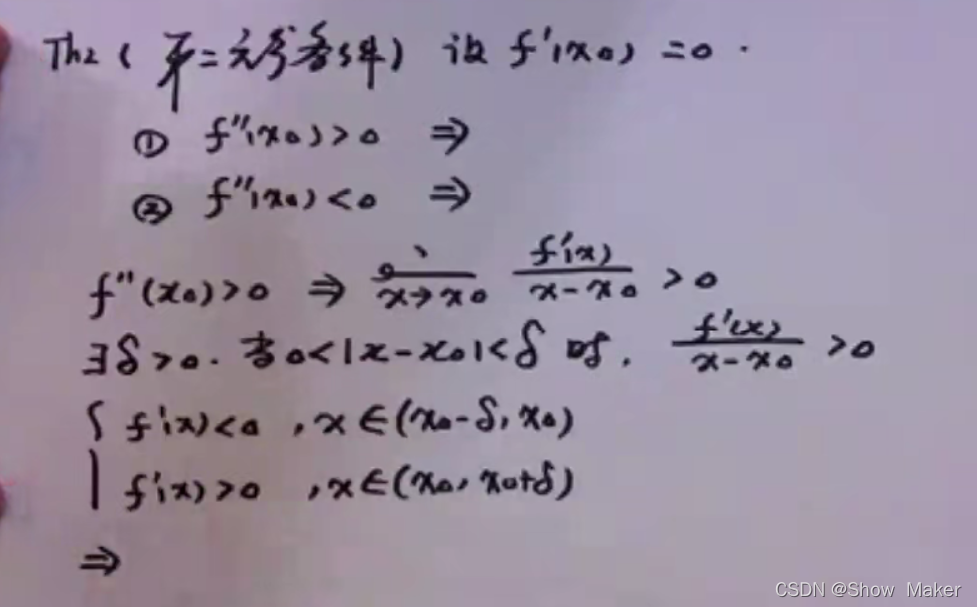 Th2 ( 第二充分条件) 设 f'(x0) =0 .
① f''(x0)>0 ⇒
② f''(x0)<0 ⇒
f''(x0)>0 ⇒ lim x→x0 f'(x) / x-x0 >0
∃δ>0. 当0<|x-x0|<δ 时, f'(x) / x-x0 >0
{ f'(x)<0 , x∈(x0-δ, x0)
f'(x)>0 , x∈(x0, x0+δ)
⇒
CSDN @Show_Maker